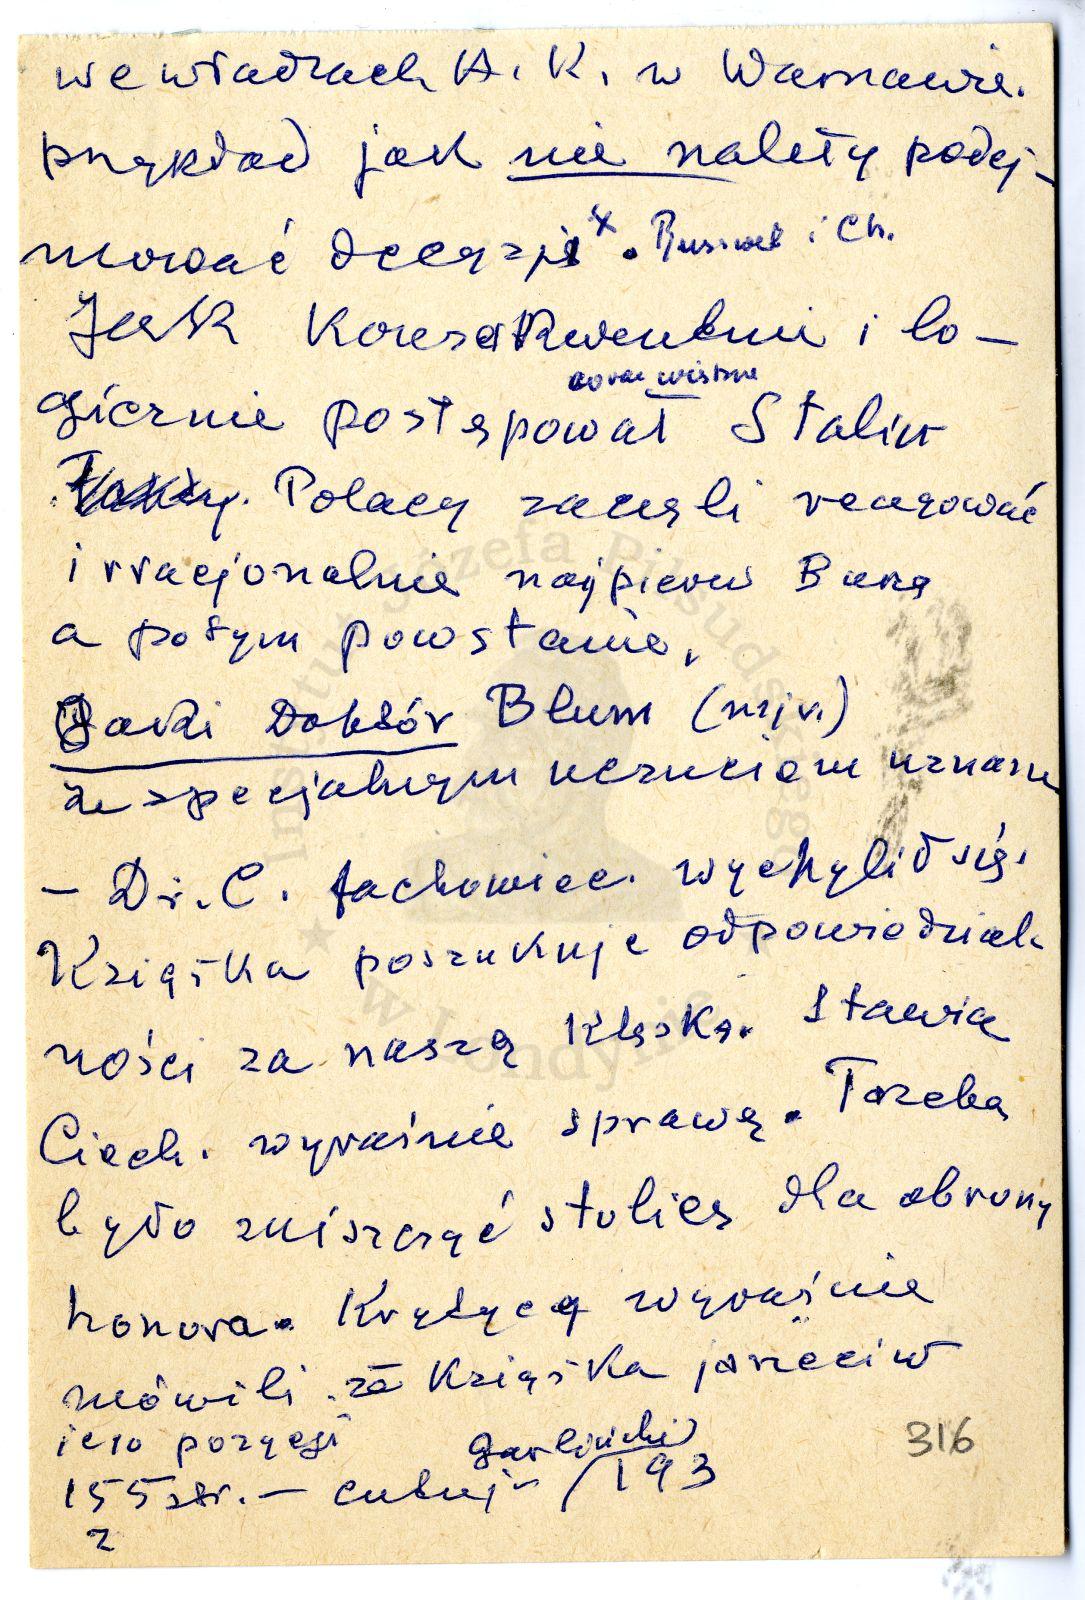 we władzach A. K. w Warszawie.
przykład jak nie należy podej-
mować decyzji x. i Ch.
Jak Konsekwentnie i lo-
gicznie postępował Stalin
Polacy zaczęli reagować
irracjonalnie najpierw Burzą
a potym powstanie.
Jaki Doktór Blum (mjr.)
ze specjalnym uczuciem uznan
- Dr. C. fachowiec. wychylił się.
Książka poszukuje odpowiedzial-
ności za naszą Klęskę. Stawia
Ciech. wyraźnie sprawę. Trzeba
było zniszczyć stolicę dla obrony
honoru. Krytycy wyraźnie
mówili że Książka przeciw
jego pozycji
155 str. - cytuj - Garliński /193
2
316
Instytut Józefa Piłsudskiego
w Londynie